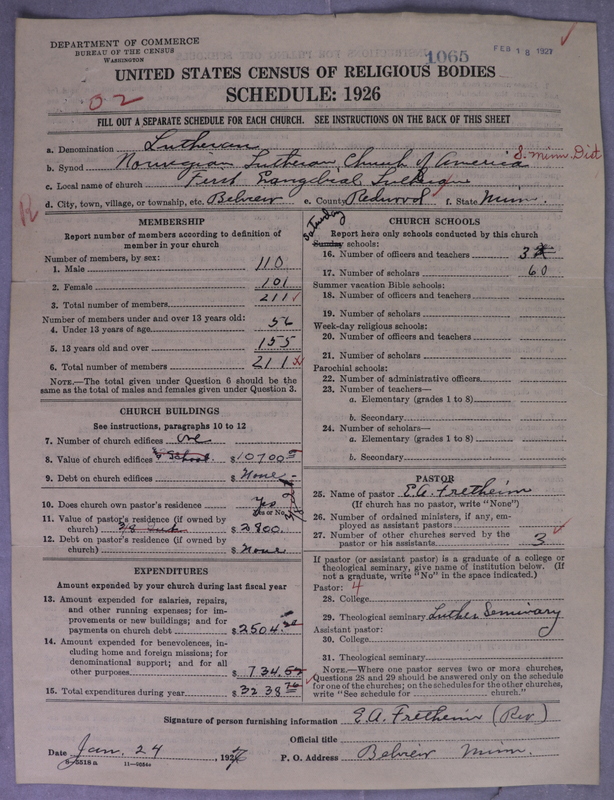 DEPARTMENT OF COMMERCE
BUREAU OF THE CENSUS
WASHINGTON
1065
FEB 18 1927
UNITED STATES CENSUS OF RELIGIOUS BODIES
SCHEDULE: 1926
02
FILL OUT A SEPARATE SCHEDULE FOR EACH CHURCH. SEE INSTRUCTIONS ON THE BACK OF THIS SHEET
a. Denomination Lutheran
b. Synod Norwegian Lutheran Church of America S. Minn. Dist
c. Local name of church First
d. City, town, village, or township, etc. Belview e. County Redwood f. State Minn.
MEMBERSHIP
Report number of members according to definition of
member in your church
Number of members, by sex:
1. Male 110
2. Female 101
3. Total number of members 211
Number of members under and over 13 years old:
4. Under 13 years of age 56
5. 13 years old and over 155
6. Total number of members 211
NOTE.—The total given under Question 6 should be
same as the total of males and females given under Question 3.
CHURCH BUILDINGS
See instructions, paragraphs 10 to 12
7. Number of church edifices one
8. Value of church edifices & School $10700
9. Debt on church edifices $None
10. Does church own pastor's residence Yes
(Yes or No)
11. Value of pastor's residence (if owned by
church) $2800.
12. Debt on pastor's residence (if owned by
church) $None
EXPENDITURES
Amount expended by your church during last fiscal year
13. Amount expended for salaries, repairs,
and other running expenses; for im-
provements or new buildings; and for
payments on church debt $2504.
14. Amount expended for benevolences, in-
cluding home and foreign missions; for
denominational support; and for all
other purposes $734.52
15. Total expenditures during year $3238
CHURCH SCHOOLS
Report here only schools conducted by this church
Saturday
Sunday schools:
16. Number of officers and teachers 3
17. Number of scholars 60
Summer vacation Bible schools:
18. Number of officers and teachers
19. Number of scholars
Week-day religious schools:
20. Number of officers and teachers
21. Number of scholars
Parochial schools:
22. Number of administrative officers
23. Number of teachers—
a. Elementary (grades 1 to 8)
b. Secondary
24. Number of scholars—
a. Elementary (grades 1 to 8)
b. Secondary
PASTOR
25. Name of pastor E.A. Fretheim
(If church has no pastor, write "None")
26. Number of ordained ministers, if any, em-
ployed as assistant pastors
27. Number of other churches served by the
pastor or his assistants 3
If pastor (or assistant pastor) is a graduate of a college or
theological seminary, give name of institution below. (If
not a graduate, write "No" in the space indicated.)
Pastor: 4
28. College
29. Theological seminary Luther Seminary
Assistant pastor:
30. College
31. Theological seminary
NOTE.—Where one pastor serves two or more churches,
Questions 28 and 29 should be answered only on the schedule
for one of the churches; on the schedules for the other churches,
write "See schedule for church."
Signature of person furnishing information E.A. Fretheim (Rev)
Official title
Date Jan. 24, 1927 P. O. Address Belview Minn.